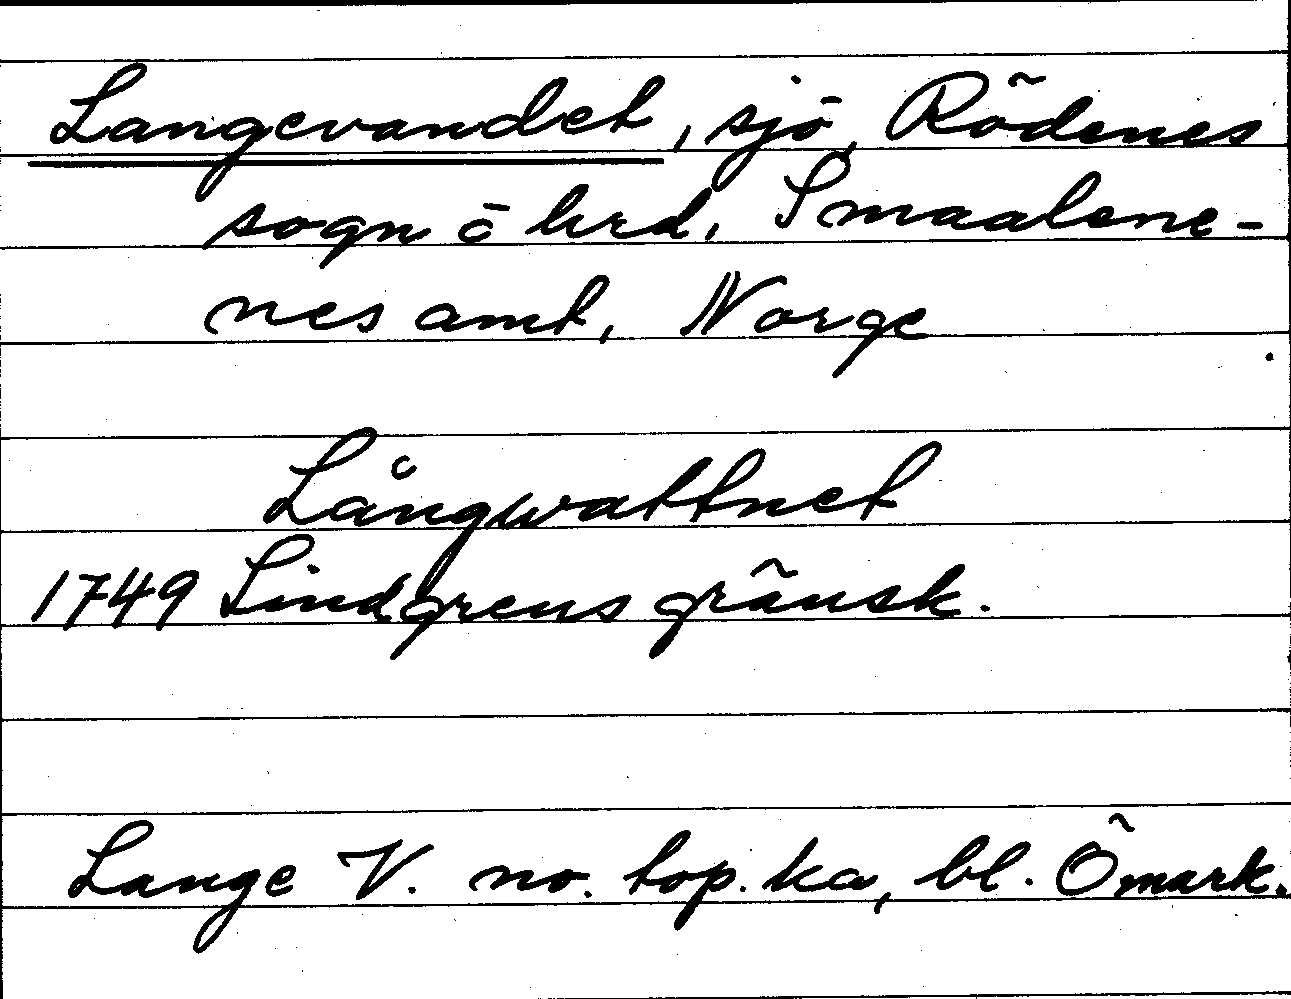 Langevandet, sjö, Rödenes
sogn o hrd, Smaalene-
nes amt, Norge
Långwattnet
1749 Lindgrens gränsk.
Lange V. no. top. ka, bl. Ömark.